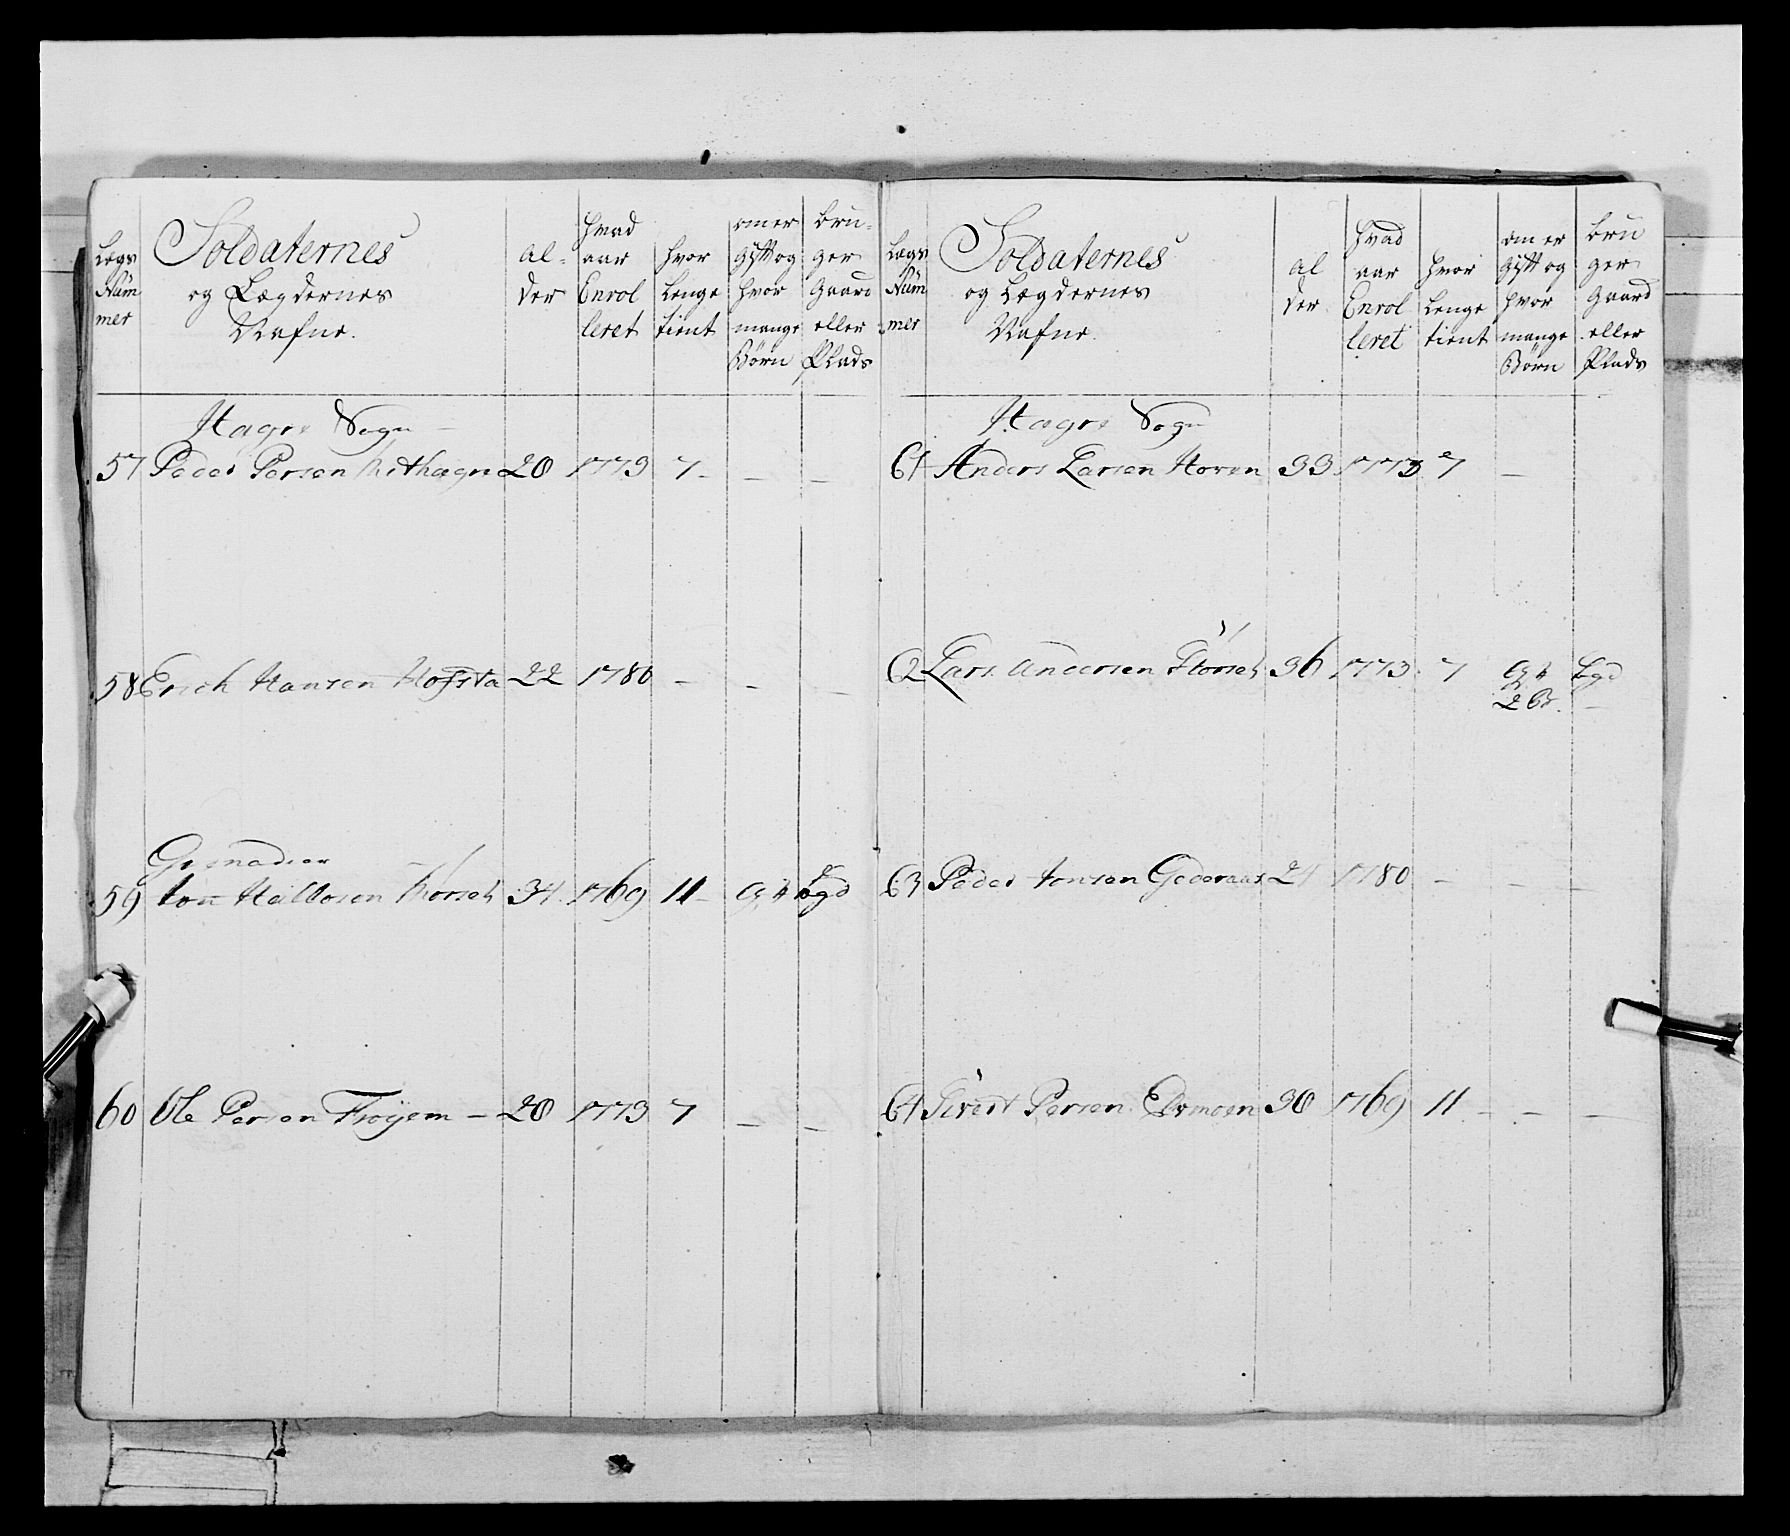 Lægs Num mer
Soldaternes og Lægdernes Nafne.
al- der
hvad aar Enrol leret
hvor Lenge tient
om er gift og hvor mange Børn
bru- ger Gaard eller Plads
Hagre Sogn
57 Peder Persen Mithagre 28 1773 7 - - -
58 Erich Hansen Hofsta 22 1780 - - -
Grenadeer
59 Jon Halvorsen 34. 1769 11 - G, lgd
60 Ole Persen Frøyem - 28 1773 7 - -
Lægs Num mer
Soldaternes og Lægdernes Nafne.
al der
hvad aar Enrol leret
hvor Lenge tient
om er gift og hvor mange Børn
bru ger Gaard eller Plads
Hagre Sogn
61 Anders Larsen Hoven 33 1773 7 -
62 Lars Andersen 36 1773 7 G, lgd
2 B. -
63 Peder Jonsen Gederaas 21 1780 - - -
64 Sivert Persen 30 1769 11 - - -